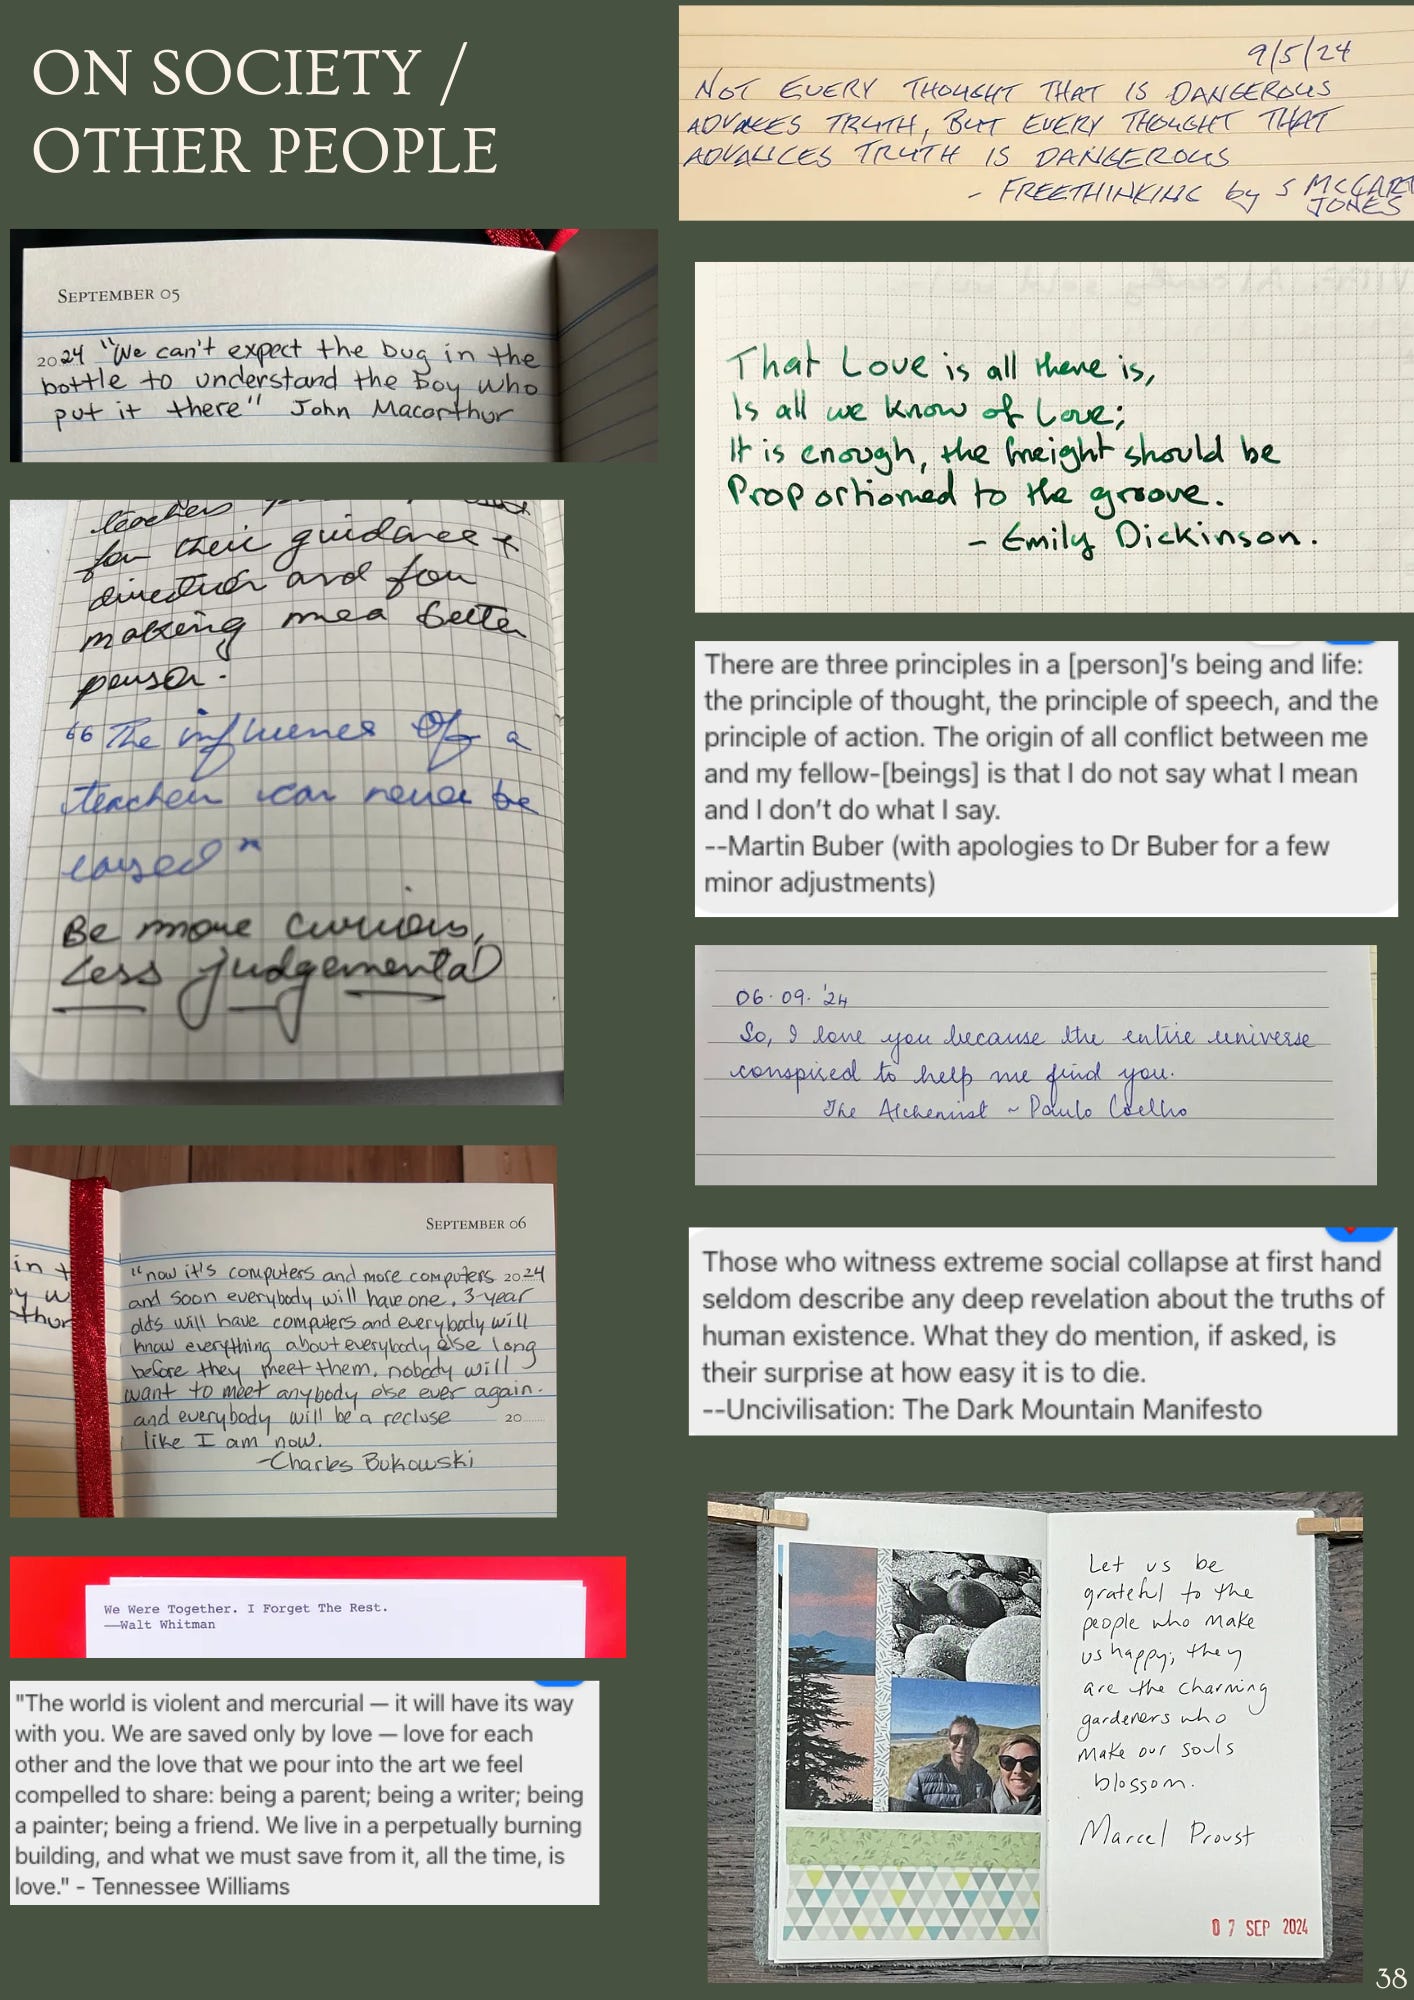 ON SOCIETY /
OTHER PEOPLE
SEPTEMBER 05
2024 "We can't expect the bug in the
bottle to understand the Boy who
put it there" John Macarthur
teachers
for their guidance +
direction and for
making me a better
person.
"The influence of a
teacher can never be
Be more curious,
Less judgemental
in t
y w
thur
SEPTEMBER 06
"now it's computers and more computers 2024
and soon everybody will have one, 3-year
olds will have computers and everybody will
know everything about everybody else long
before they meet them. nobody will
want to meet anybody else ever again.
and everybody will be a recluse 20
like I am now.
-Charles Bukowski
We Were Together. I Forget The Rest.
——Walt Whitman
"The world is violent and mercurial — it will have its way
with you. We are saved only by love — love for each
other and the love that we pour into the art we feel
compelled to share: being a parent; being a writer; being
a painter; being a friend. We live in a perpetually burning
building, and what we must save from it, all the time, is
love." - Tennessee Williams
9/5/24
NOT EVERY THOUGHT THAT IS DANGEROUS
ADVANCES TRUTH, BUT EVERY THOUGHT THAT
ADVANCES TRUTH IS DANGEROUS
- FREETHINKING by S MCCART
JONES
That Love is all there is,
Is all we know of Love;
It is enough, the freight should be
Proportioned to the groove.
- Emily Dickinson.
There are three principles in a [person]'s being and life:
the principle of thought, the principle of speech, and the
principle of action. The origin of all conflict between me
and my fellow-[beings] is that I do not say what I mean
and I don't do what I say.
--Martin Buber (with apologies to Dr Buber for a few
minor adjustments)
06.09.'24
So, I love you because the entire universe
conspired to help me find you.
The Alchemist ~ Paulo Coelho
Those who witness extreme social collapse at first hand
seldom describe any deep revelation about the truths of
human existence. What they do mention, if asked, is
their surprise at how easy it is to die.
--Uncivilisation: The Dark Mountain Manifesto
Let us be
grateful to the
people who make
us happy; they
are the charming
gardeners who
make our souls
blossom.
Marcel Proust
07 SEP 2024
38